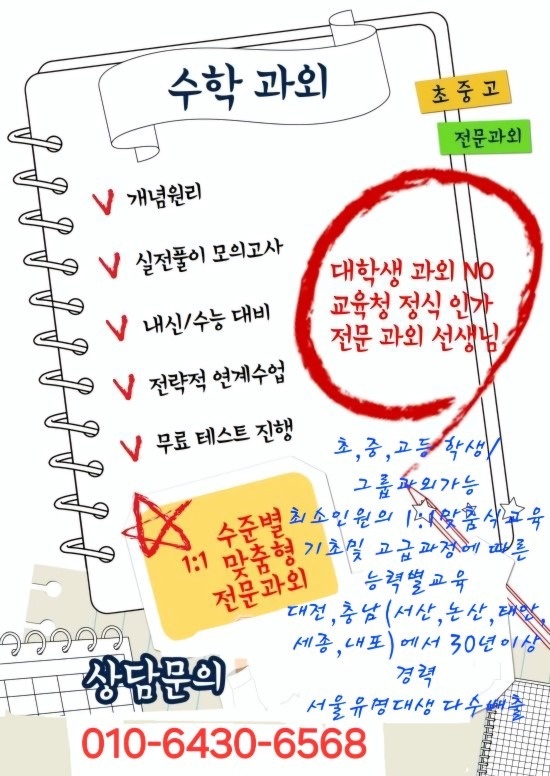 수학 과외
초 중 고
전문과외
개념원리
실전풀이 모의고사
내신/수능 대비
전략적 연계수업
무료 테스트 진행
대학생 과외 NO
교육청 정식 인가
전문 과외 선생님
수준별
1:1 맞춤형
전문과외
초,중,고등 학생/
그룹과외가능
최소인원의 1:1맞춤식교육
기초및 고급과정에 따른
능력별교육
대전,충남(서산,논산,태안,
세종,내포)에서 30년이상
경력
서울유명대생 다수배출
상담문의
010-6430-6568